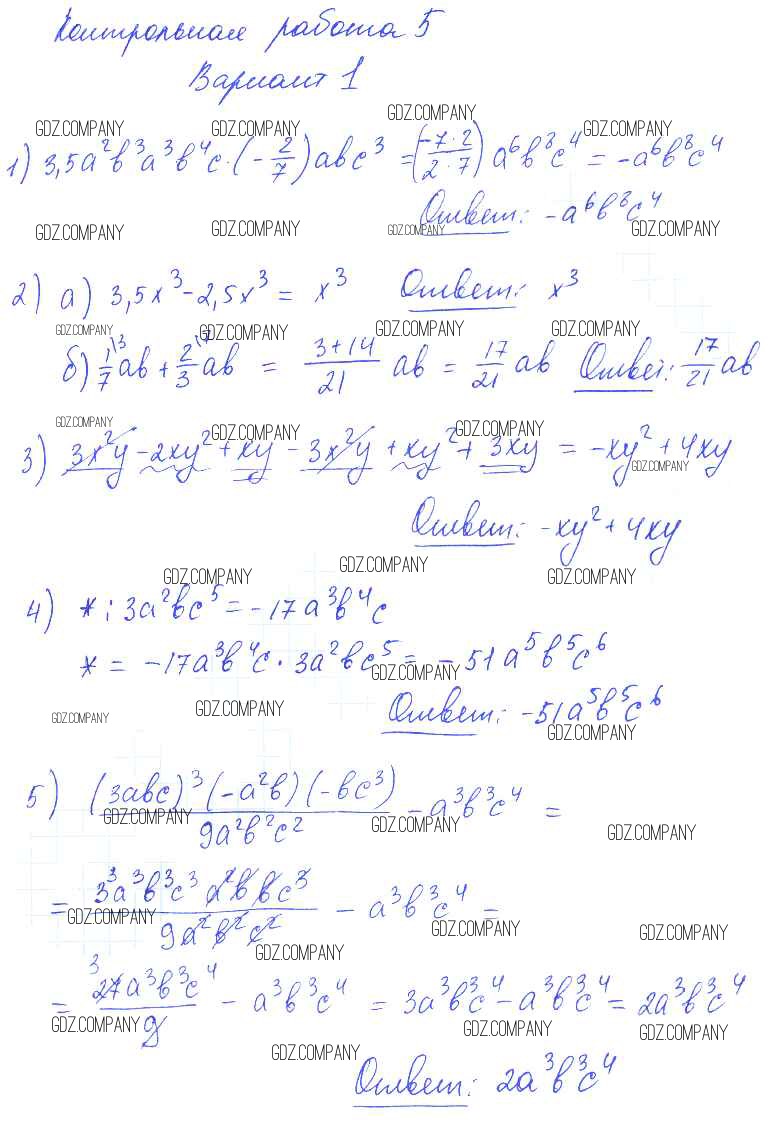 Контрольная работа 5
Вариант 1
GDZ.COMPANY GDZ.COMPANY GDZ.COMPANY GDZ.COMPANY
1) 3,5a²b³a³b⁴c·(-2/7)abc³ = (-7·2/2·7) a⁶b⁸c⁴ = -a⁶b⁸c⁴
Ответ: -a⁶b⁸c⁴
GDZ.COMPANY GDZ.COMPANY GDZ.COMPANY GDZ.COMPANY
2) а) 3,5x³-2,5x³ = x³ Ответ: x³
GDZ.COMPANY GDZ.COMPANY GDZ.COMPANY GDZ.COMPANY
б) 1\³/7 ab + 2\⁷/3 ab = 3+14/21 ab = 17/21 ab Ответ: 17/21 ab
GDZ.COMPANY GDZ.COMPANY GDZ.COMPANY
3) 3x²y - 2xy² + xy - 3x²y + xy² + 3xy = -xy² + 4xy
GDZ.COMPANY
Ответ: -xy² + 4xy
GDZ.COMPANY GDZ.COMPANY GDZ.COMPANY
4) * : 3a²bc⁵ = -17a³b⁴c
* = -17a³b⁴c · 3a²bc⁵ = -51a⁵b⁵c⁶
GDZ.COMPANY
GDZ.COMPANY GDZ.COMPANY
Ответ: -51a⁵b⁵c⁶
GDZ.COMPANY
5) (3abc)³(-a²b)(-bc³)/9a²b²c² - a³b³c⁴ =
GDZ.COMPANY GDZ.COMPANY GDZ.COMPANY
= 3³a³b³c³ a²b bc³/9a²b²c² - a³b³c⁴ =
GDZ.COMPANY GDZ.COMPANY GDZ.COMPANY
GDZ.COMPANY
= 3 27a³b³c⁴/9 - a³b³c⁴ = 3a³b³c⁴ - a³b³c⁴ = 2a³b³c⁴
GDZ.COMPANY GDZ.COMPANY GDZ.COMPANY
GDZ.COMPANY
Ответ: 2a³b³c⁴